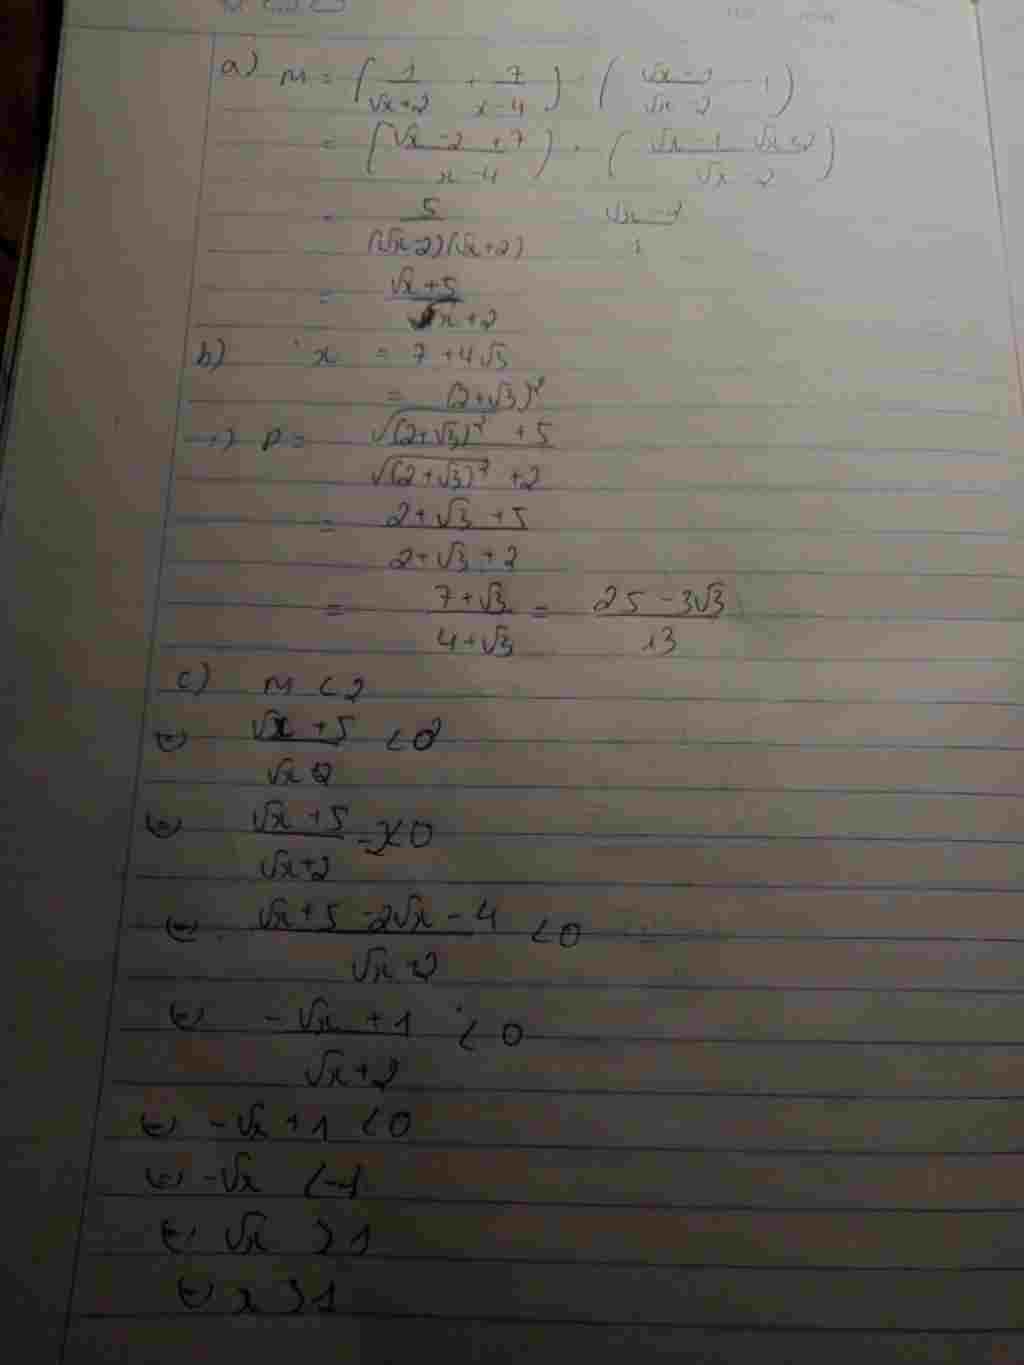 a) M = ( 1/(√x+2) + 7/(x-4) ) : ( (√x-1)/(√x-2) - 1 )
= ( (√x-2+7)/(x-4) ) : ( (√x-1-√x+2)/(√x-2) )
= 5/((√x-2)(√x+2)) (√x-2)/1
= (√x+5)/(√x+2)
b) x = 7+4√3
= (2+√3)²
=> P = (√(2+√3)² + 5)/(√(2+√3)² + 2)
= (2+√3+5)/(2+√3+2)
= (7+√3)/(4+√3) = (25-3√3)/13
c) M < 2
⇔ (√x+5)/(√x+2) < 2
⇔ (√x+5)/(√x+2) -2<0
⇔ (√x+5-2√x-4)/(√x+2) <0
⇔ (-√x+1)/(√x+2) < 0
⇔ -√x+1 <0
⇔ -√x < -1
⇔ √x > 1
⇔ x > 1